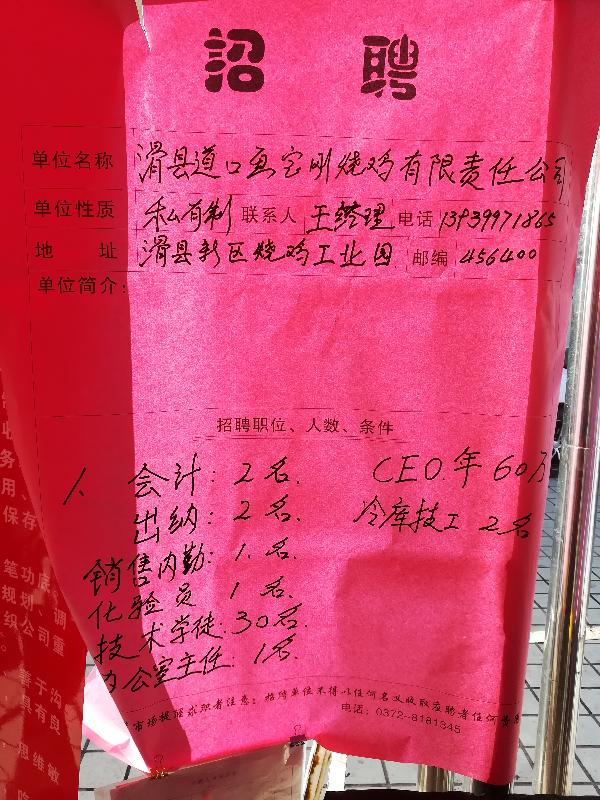 招聘
单位名称 滑县道口画宝刚烧鸡有限责任公司
单位性质 私有制 联系人 王经理 电话 13939971865
地 址 滑县新区烧鸡工业园 邮编 456400
单位简介:
招聘职位、人数、条件
会计: 2名. CEO.年60万
出纳: 2名. 冷库技工 2名
销售内勤: 1.名.
化验员 1名.
技术学徒: 30名.
办公室主任: 1名.
市场提醒求职者注意: 招聘单位不得以任何名义收取应聘者任何
电话: 0372--8181345
务
用、
保存
笔功底
调
规划
织公司重
善于沟
具有良
思维敏